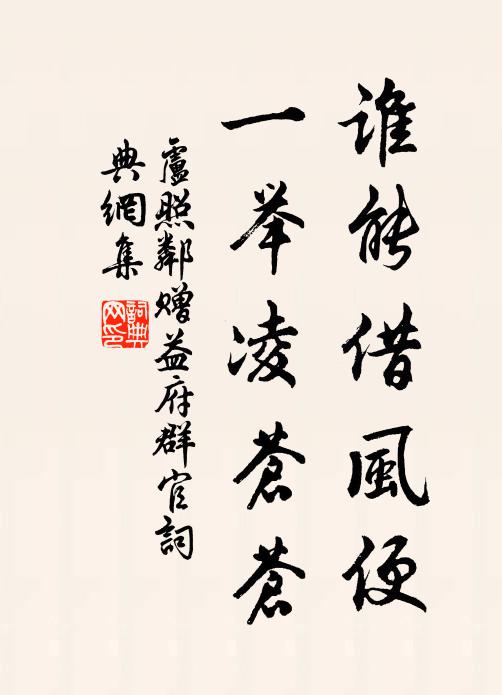 谁能借風便
一举凌蒼蒼
盧照鄰赠益府群官詞
典網集
詞典网印